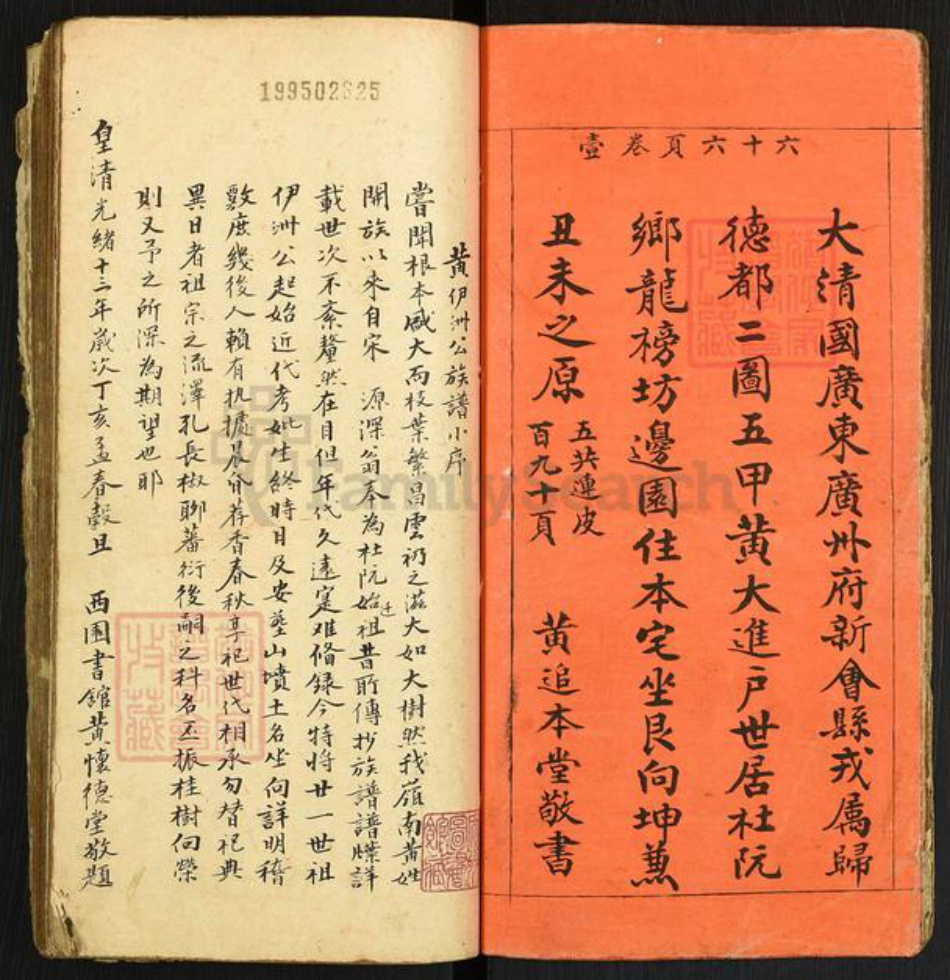 六十六頁卷壹
大清國廣東廣州府新會縣戎属歸
德都二圖五甲黃大進戶世居杜阮
鄉龍榜坊邊園住本宅坐艮向坤兼
丑未之原
五共連皮
百九十頁
黃追本堂敬書
199502625
黃伊洲公族譜小序
嘗聞根本盛大而枝葉繁昌雲礽之滋大如大樹然我嶺南黃姓
開族以來自宋 源深翁奉為杜阮始遷祖昔所傳抄族譜譜牒詳
載世次不紊釐然在目但年代久遠寔难俻録今特將廿一世祖
伊洲公起始近代考妣生終時日及安塋山墳土名坐向詳明稽
敫庶幾後人賴有執據晨昏荐香春秋享祀世代相承勿替祀典
異日者祖宗之流澤孔長椒聊蕃衍後嗣之科名丕振桂樹向榮
則又予之所深為期望也耶
皇清光緒十三年歲次丁亥孟春穀旦 西園書館黃懷德堂敬題
FamilySearch